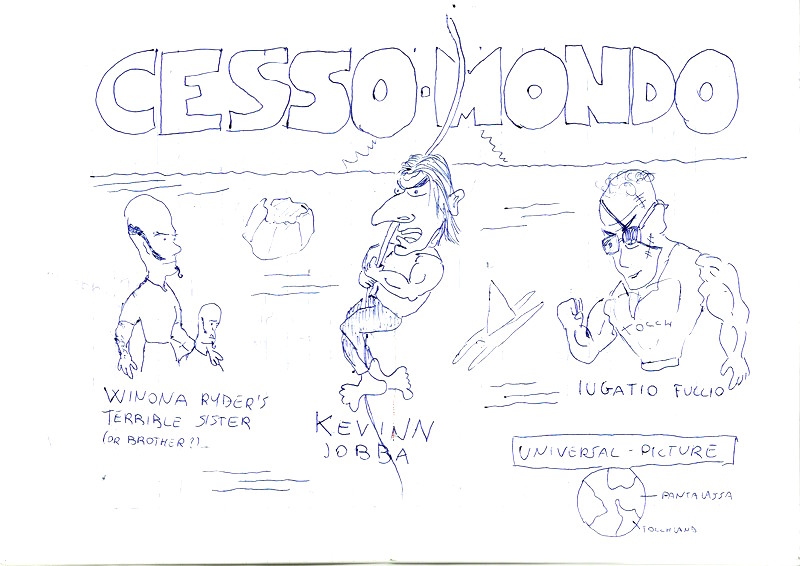 CESSO·MONDO
WINONA RYDER'S
TERRIBLE SISTER
(OR BROTHER?)...
KEVINN
JOBBA
TOCCH
IUGATIO FUCCIO
UNIVERSAL - PICTURE
PANTALASSA
TOCCHLAND